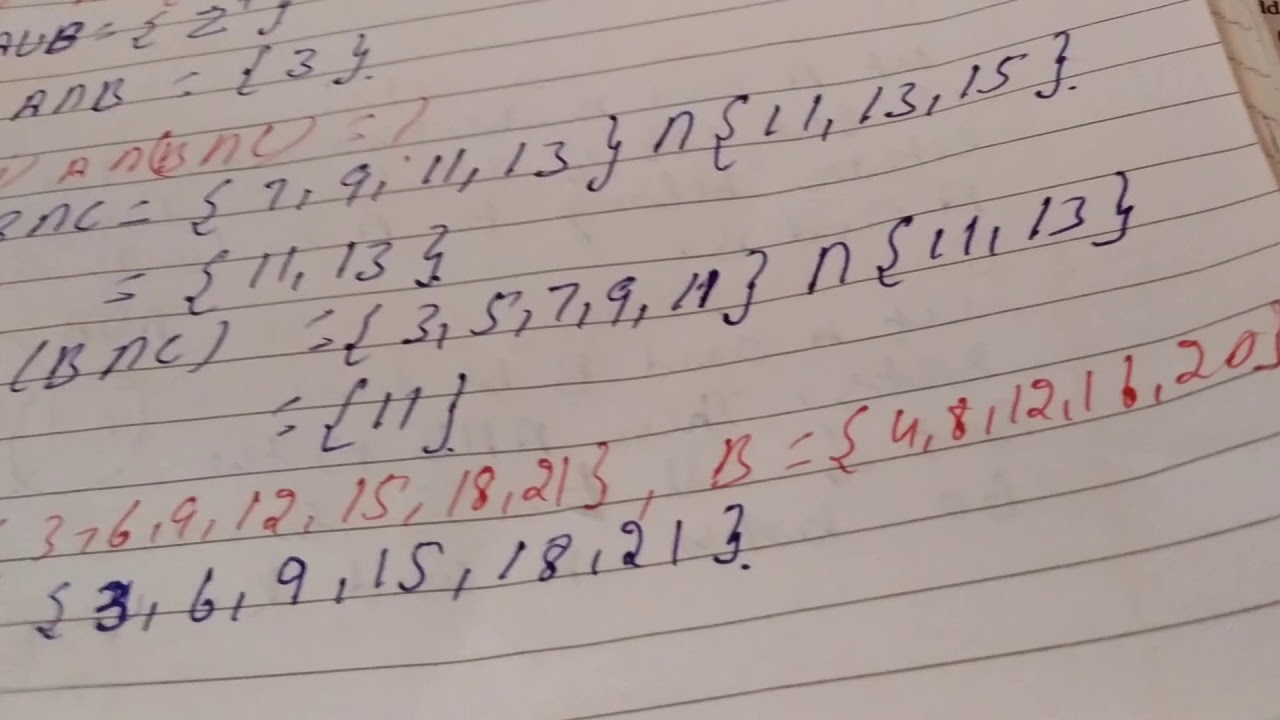 AUB = { Z+ }
A∩B = {3}.
A∩(B∩C) = ?
B∩C = {7, 9, 11, 13} ∩ {11, 13, 15}.
= {11, 13}.
(B∩C) = {3, 5, 7, 9, 11} ∩ {11, 13}
= {11}.
3, 6, 9, 12, 15, 18, 21}, B = {4, 8, 12, 16, 20}
{3, 6, 9, 15, 18, 21}.